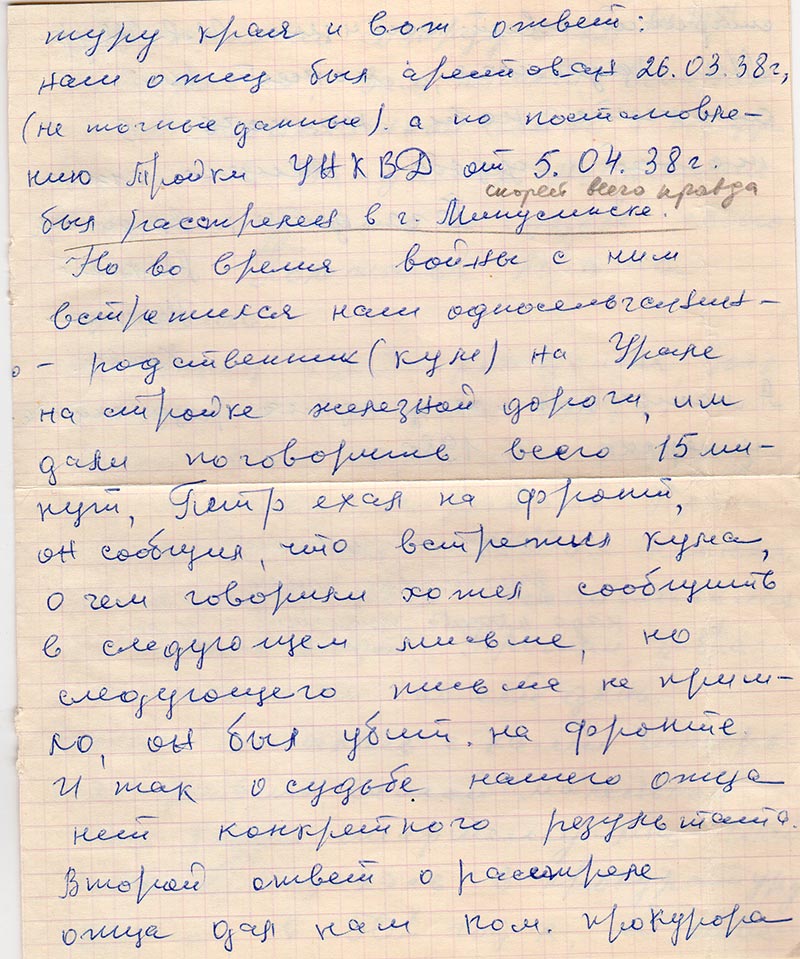 туру края и вот ответ:
наш отец был арестован 26.03.38 г,
(не точные данные). а по постановле-
нию тройки УНКВД от 5.04.38 г.
скорей всего правда
был расстрелен в г. Минусинске.
Но во время войны с ним
встретился наш односельчанин-
- родственник (кум) на Урале
на стройке железной дороги, им
дали поговорить всего 15 ми-
нут, Петр ехал на фронт,
он сообщил, что встретил кума,
о чем говорили хотел сообщить
в следующем письме, но
следующего письма не приш-
ло, он был убит. на фронте.
И так о судьбе нашего отца
нет конкретного результата.
Второй ответ о расстреле
отца дал нам пом. прокурора